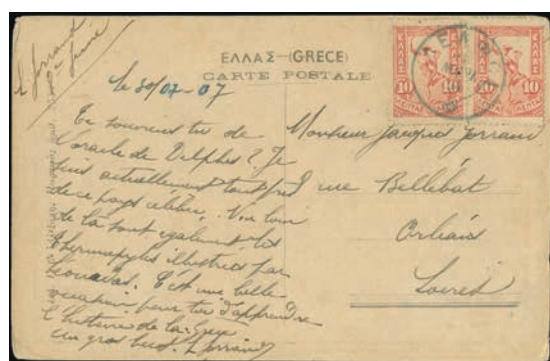 L Jorrand
2e
ΕΛΛΑΣ-(GRECE)
CARTE POSTALE
ΕΛΛΑΣ
ΕΛΛΑΣ
10 10
ΛΕΠΤΑ
10 10
ΛΕΠΤΑ
le 30/07-07
Te souviens tu de
l'oracle de Delphes? Je
suis actuellement tout près
de ce pays célèbre. Non loin
de là sont également les
Thermopyles illustrées par
Léonidas. C'est une belle
occasion pour toi d'apprendre
l'histoire de la Grèce
un gros baiser. L Jorrand
Monsieur Jacques Jorrand
rue Bellebat
Orléans
Loiret